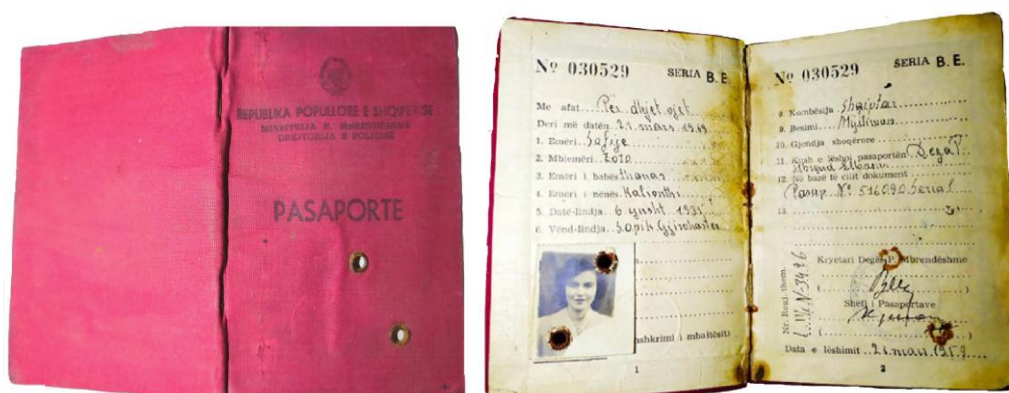 REPUBLIKA POPULLORE E SHQIPERISE
MINISTRIJA E MBRENDSHME
DREJTORIJA E POLICISE
PASAPORTE
Nº 030529 SERIA B. E.
Me afat Për dhjet vjet
Deri më datën 21 mars 1969
1. Emëri Safije
2. Mbiemëri Zoto
3. Emëri i babës Thanas
4. Emëri i nënës
5. Datë-lindja 6 gusht 1935
6. Vënd-lindja Sopik Gjirokaster
nshkrimi i mbajtësit)
1
Nº 030529 SERIA B. E.
8. Kombësija Shqiptar
9. Besimi Myslman
10. Gjendja shoqërore
11. Kush e lëshoi pasaportën Dega P.
Mbrend Elbasan
12. Në bazë të cilit dokument
Pasap. Nº 516090 Seria
13.
Nr. Regj. them.
Kryetari Degës P. Mbrendëshme
Shefi i Pasaportave
Data e lëshimit 21 mars 1959
2